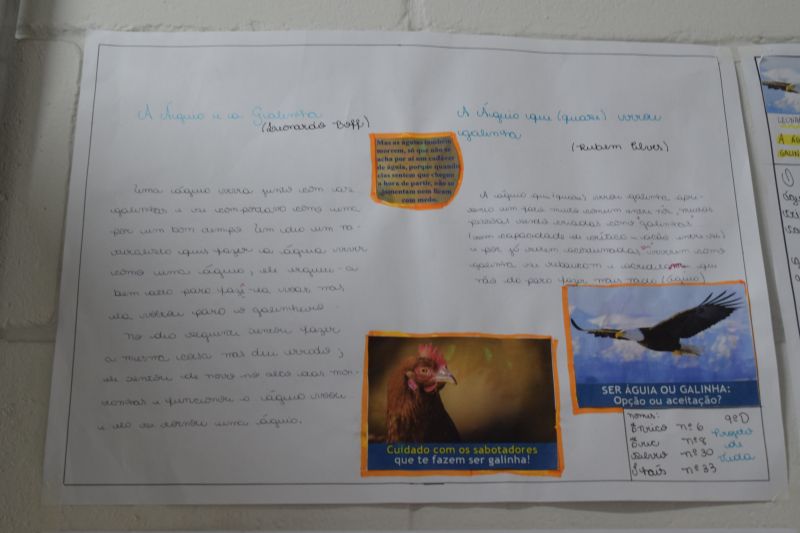 A Águia e a Galinha
(Leonardo Boff)
Uma águia vivia junto com as
galinhas e se comportava como uma
por um bom tempo. Um dia um na-
turalista quis fazer a águia viver
como uma águia, ele ergueu-a
bem alto para fazê-la voar, mas
ela voltou para o galinheiro.
No dia seguinte tentou fazer
a mesma coisa mas deu errado;
ele tentou de novo no alto das mon-
tanhas e funcionou a águia voou
e ela se tornou uma águia.
Mas as águias também
morrem, só que não se
acha por aí um cadáver
de águia, porque quando
elas sentem que chegou
a hora de partir, não se
lamentam nem ficam
com medo.
A Águia que (quase) virou
galinha
(Rubem Alves)
A águia que (quase) virou galinha apre-
senta um fato muito comum entre nós, muitas
pessoas sendo criadas como "galinhas"
(sem capacidade de crítica - ação entre si)
e por já serem acostumadas em viverem como
galinha se rebaixam e acreditam que
não dá para fazer mais nada (águia)
Cuidado com os sabotadores
que te fazem ser galinha!
SER ÁGUIA OU GALINHA:
Opção ou aceitação?
nomes: 9ºD
Enrico nº 6 Projeto
Eric nº 8 de
nº 30 Vida
nº 33
LEONA
A ÁG
GALIN
O